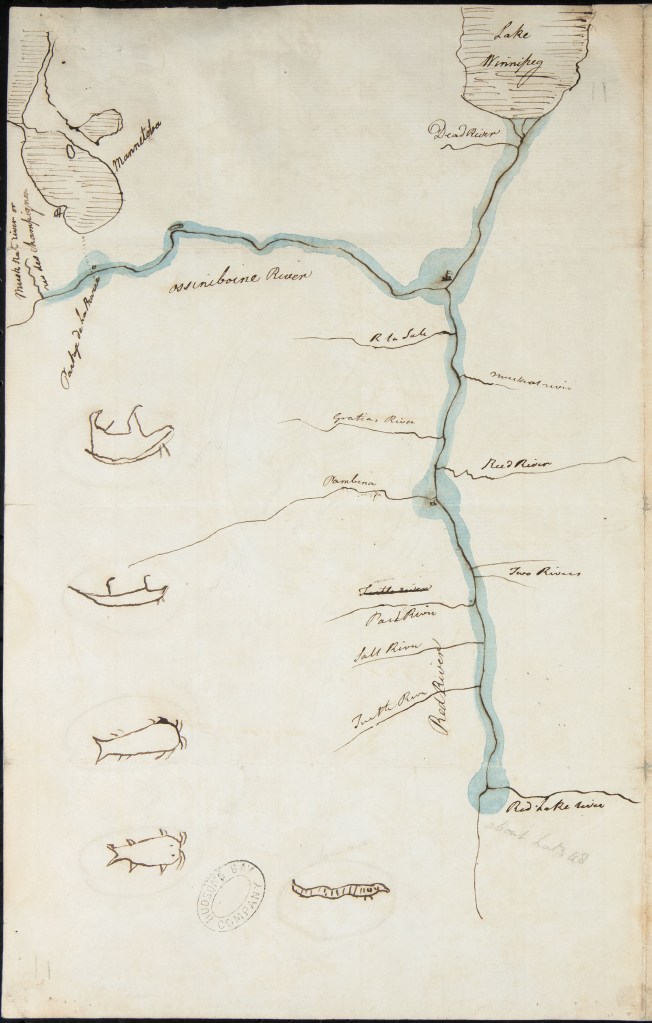 Lake
Winnipeg
11
Dead River
Mannetoba
Musk rat river or
riv des champignon
Portage de la Prairie
ossiniboine River
R la Sale
muskrat river
Gratias River
Reed River
Pambina
Two Rivers
Turtle river
Park River
Salt River
Red River
Turtle River
Red Lake river
about Latt. 48
HUDSON'S BAY
COMPANY
11